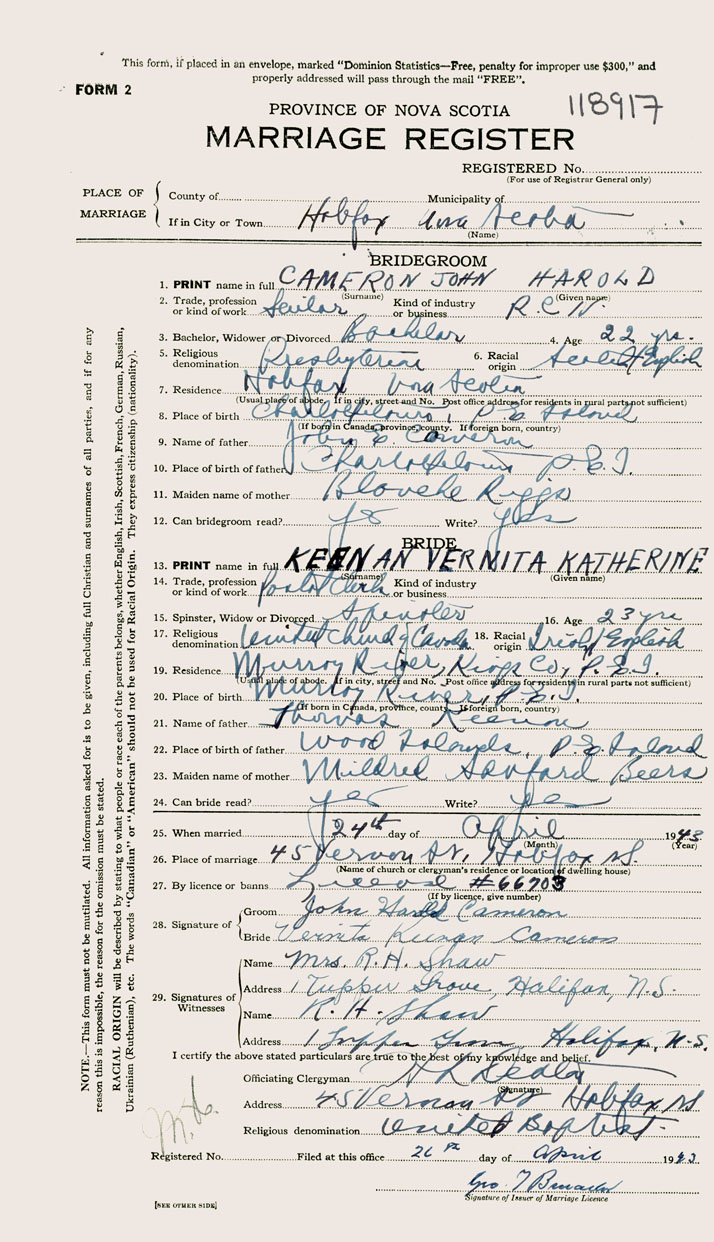 This form, if placed in an envelope, marked “Dominion Statistics—Free, penalty for improper use $300,” and
properly addressed will pass through the mail “FREE”.
FORM 2
PROVINCE OF NOVA SCOTIA 118917
MARRIAGE REGISTER
REGISTERED No.
(For use of Registrar General only)
PLACE OF MARRIAGE
County of Municipality of
If in City or Town Halifax Nova Scotia
(Name)
BRIDEGROOM
1. PRINT name in full CAMERON JOHN HAROLD
(Surname) (Given name)
2. Trade, profession or kind of work Sailor Kind of industry or business R.C.N.
3. Bachelor, Widower or Divorced Bachelor 4. Age 22 yrs.
5. Religious denomination Presbyterian 6. Racial origin Scotch/English
7. Residence Halifax Nova Scotia
(Usual place of abode. If in city, street and No. Post office address for residents in rural parts not sufficient)
8. Place of birth Charlottetown, P.E. Island
(If born in Canada, province, county. If foreign born, country)
9. Name of father John E. Cameron
10. Place of birth of father Charlottetown P.E.I.
11. Maiden name of mother Blanche Riggs
12. Can bridegroom read? yes Write? yes
BRIDE
13. PRINT name in full KEENAN VERNITA KATHERINE
(Surname) (Given name)
14. Trade, profession or kind of work Postal Clerk Kind of industry or business
15. Spinster, Widow or Divorced Spinster 16. Age 23 yrs
17. Religious denomination United Church of Canada 18. Racial origin Irish/English
19. Residence Murray River, Kings Co, P.E.I.
(Usual place of abode. If in city, street and No. Post office address for residents in rural parts not sufficient)
20. Place of birth Murray River, P.E.I.
(If born in Canada, province, county. If foreign born, country)
21. Name of father Thomas Keenan
22. Place of birth of father Wood Islands, P.E. Island
23. Maiden name of mother Mildred Sanford Beers
24. Can bride read? yes Write? yes
25. When married 24th day of April 1943
(Month) (Year)
26. Place of marriage 45 Vernon St, Halifax N.S.
(Name of church or clergyman's residence or location of dwelling house)
27. By licence or banns License #66703
(If by licence, give number)
28. Signature of
Groom John Harold Cameron
Bride Vernita Keenan Cameron
29. Signatures of Witnesses
Name Mrs. R.H. Shaw
Address 1 Tupper Grove, Halifax, N.S.
Name R. H. Shaw
Address 1 Tupper Grove, Halifax, N.S.
I certify the above stated particulars are true to the best of my knowledge and belief.
Officiating Clergyman
(Signature)
Address 45 Vernon St Halifax NS
Religious denomination United Baptist
Registered No. Filed at this office 26th day of April 1943
Geo.
Signature of Issuer of Marriage Licence
[SEE OTHER SIDE]
NOTE.—This form must not be mutilated. All information asked for is to be given, including full Christian and surnames of all parties, and if for any
reason this is impossible, the reason for the omission must be stated.
RACIAL ORIGIN will be described by stating to what people or race each of the parents belongs, whether English, Irish, Scottish, French, German, Russian,
Ukrainian (Ruthenian), etc. The words “Canadian” or “American” should not be used for Racial Origin. They express citizenship (nationality).